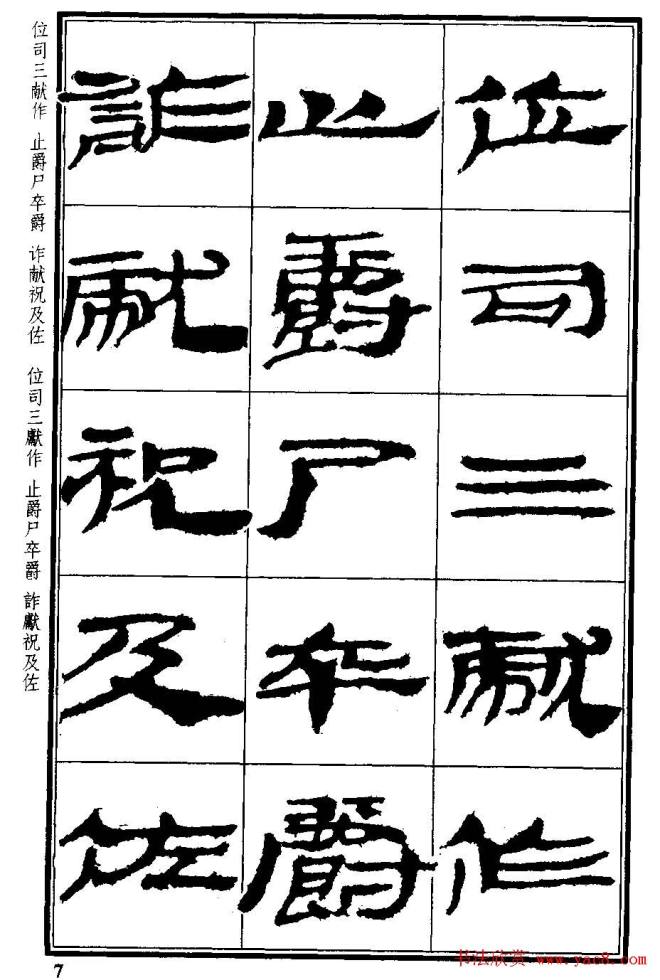 位司三献作
止爵尸卒爵
诈献祝及佐
位司三献作 止爵尸卒爵 诈献祝及佐 位司三獻作 止爵尸卒爵 詐獻祝及佐
7
书法欣赏 www.yac8.com